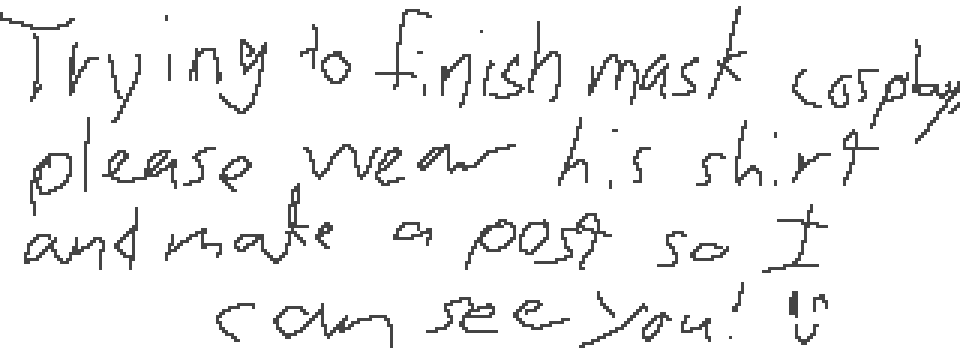 Trying to finish mask cosplay,
please wear his shirt
and make a post so I
can see you! Ü